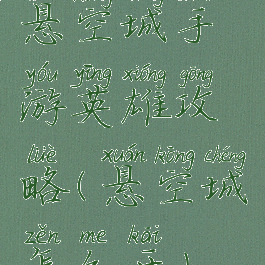 悬空城手
yóu yīng xióng gōng
游英雄攻
lüè xuán kōng chéng
略(悬空城
zěn me kāi